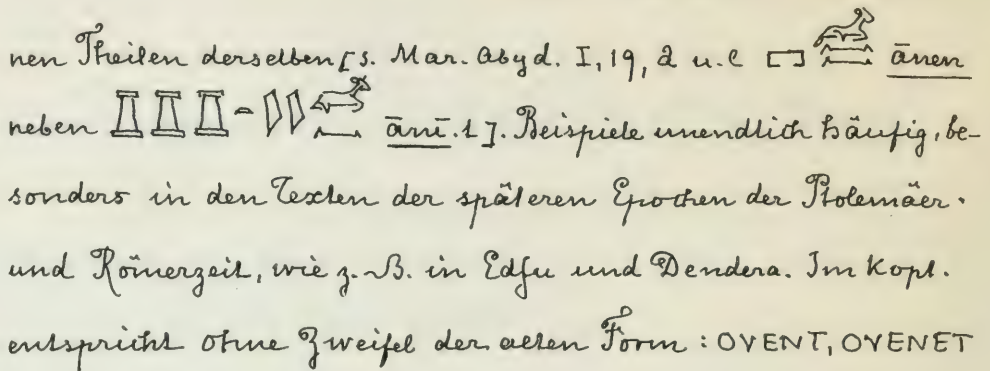 nen Theilen derselben [s. Mar. Abyd. I, 19, d u. e ānen
neben ānī.t ]. Beispiele unendlich häufig, be-
sonders in den Texten der späteren Epochen der Ptolemäer-
und Römerzeit, wie z. B. in Edfu und Dendera. Im Kopt.
entspricht ohne Zweifel der alten Form : ΟΥΕΝΤ, ΟΥΕΝΕΤ